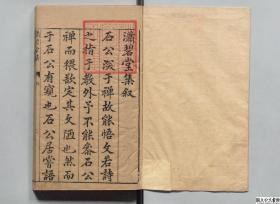 瀟碧堂集叙
石公深于禪故能悟文若詩
之指于教外予不能番石公
禪而猥歆定其文陋也然而
于石公有窺也石公居嘗語